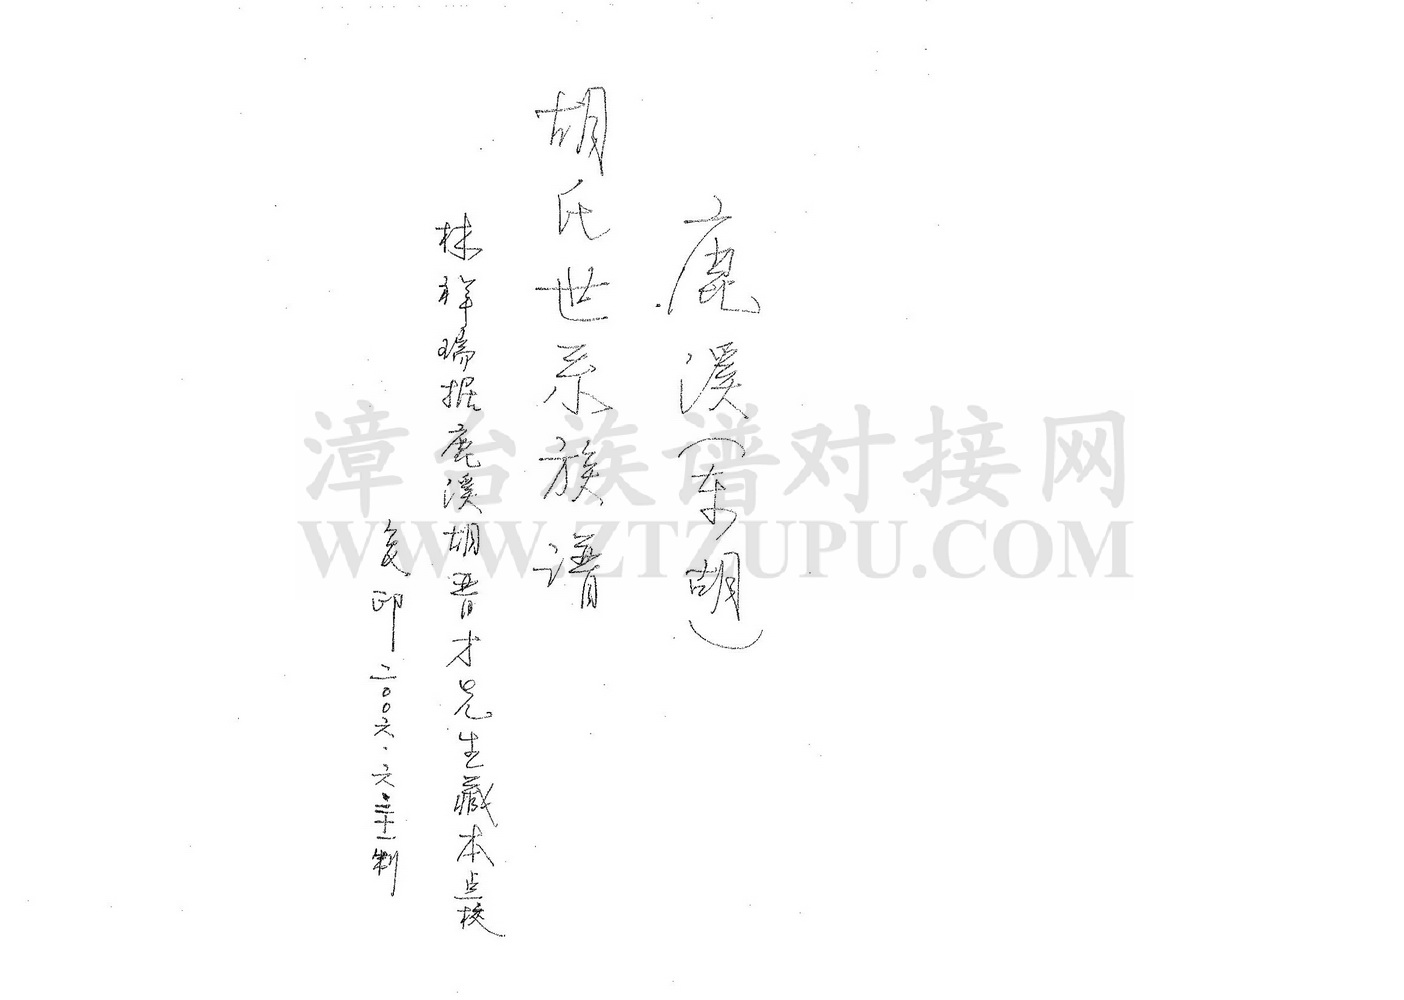 鹿溪(东胡)
胡氏世系族谱
林祥瑞据鹿溪胡晋才先生藏本点校
复印二〇〇六·六·二十一制
漳台族谱对接网
WWW.ZTZUPU.COM